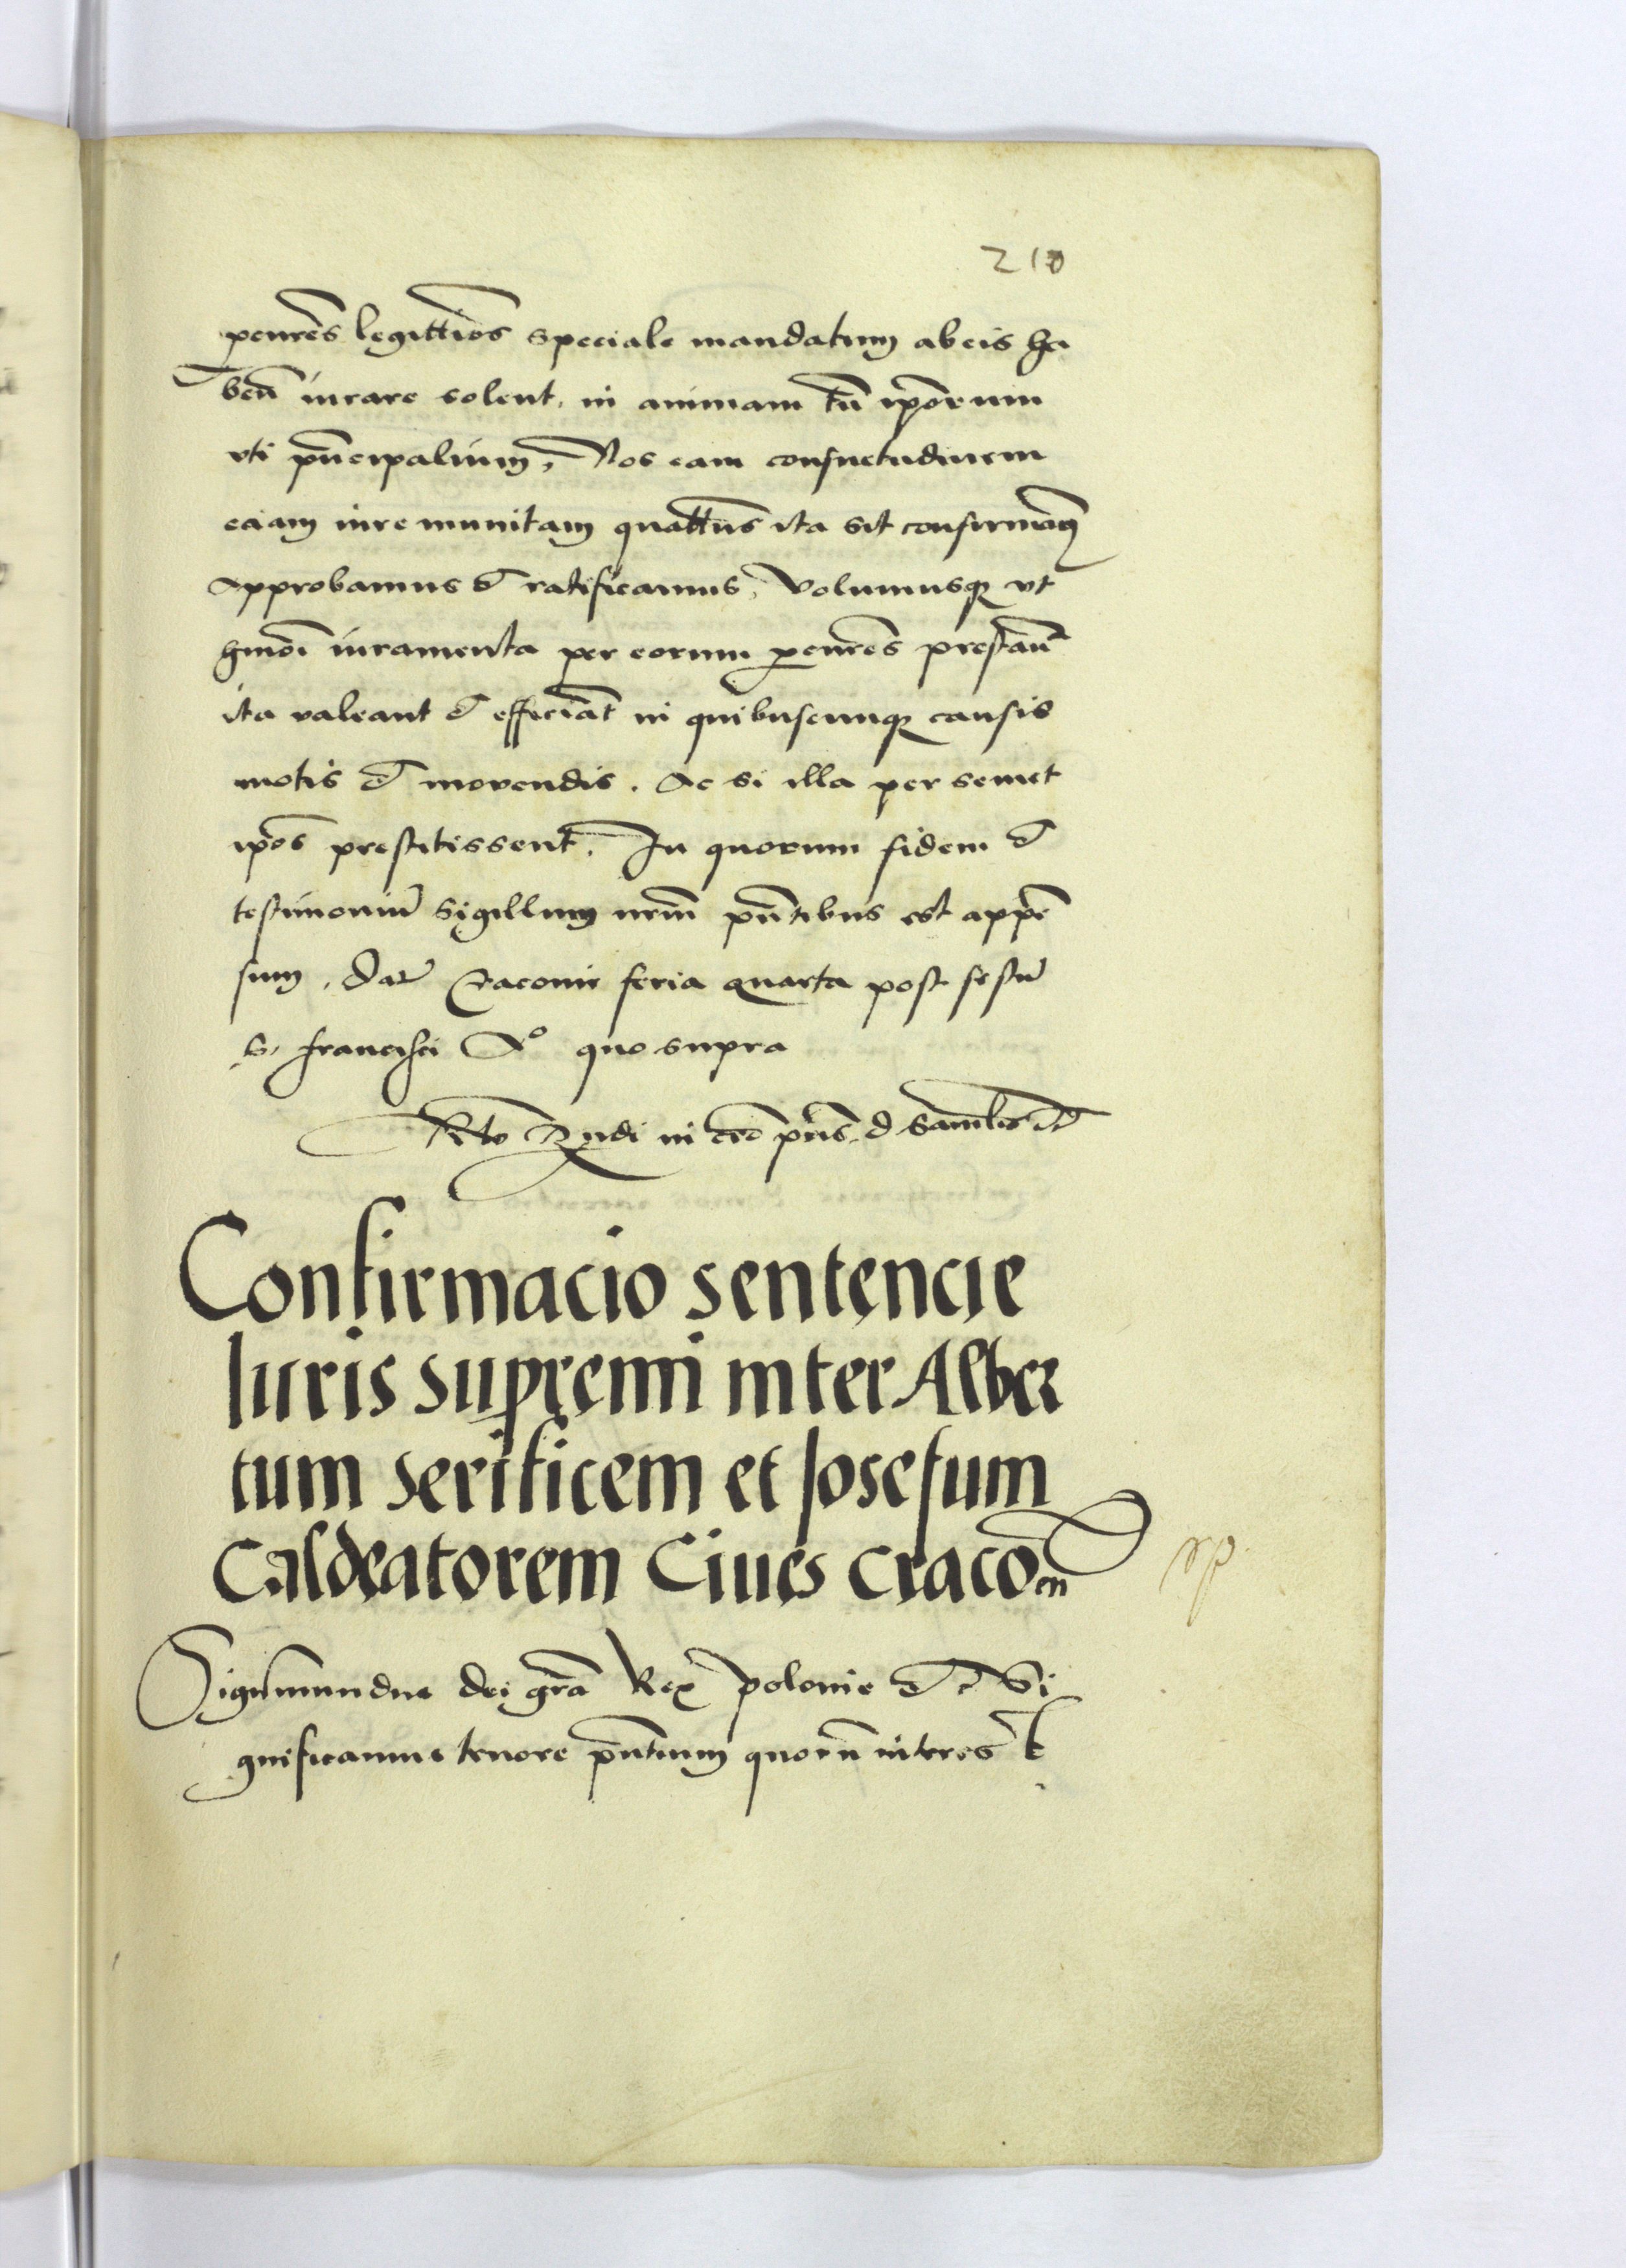 210
pcurēs legittīos speciale mandatum ab eis ha
beñ iurare solent, in animam tñ ip̄orum
vti pñcipalium, Nos eam consuetudinem
eciam iure munitam quattūs ita sit confirmamꝰ
Approbamus et ratificamus, Volumusqȝ vt
hmōi iuramenta per eorum pcurēs prestañ
ita valeant et efficiāt in quibuscunqȝ causis
motis et movendis. Ac si illa per semet
ip̄os prestitissent. In quorum fidem et
testimoniū sigillum nrm̄ pñtibus est appē
sum. Dat̄ Cracouie feria quarta post festū
S. francisci Aº quo supra
in pñs d
Confirmacio sentencie
Iuris supremi inter Alber
tum serificem et Josefum
Caldeatorem Ciues Cracoen̄
Sigismundus dei grā Rex Polonie etc Si
gnificamus tenore pñtium quorū interest